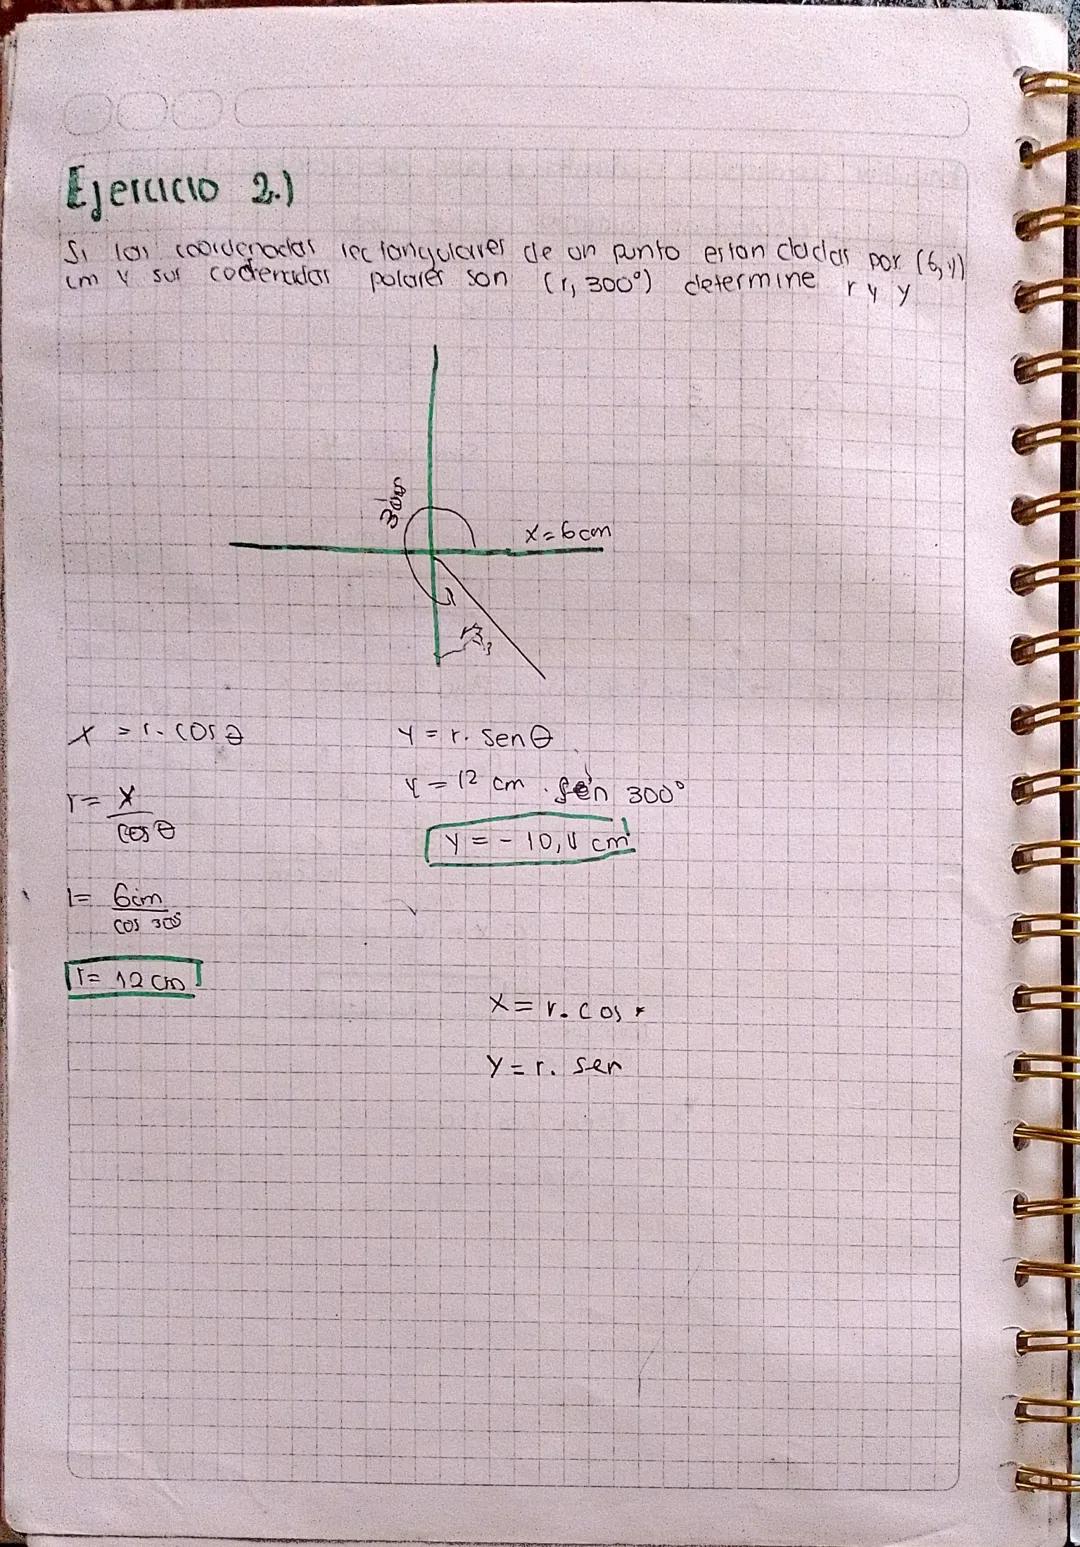 Ejercicio 2.)
Si las coordenadas rectangulares de un punto estan dadas por (6,y)
cm y sus codenadas polares son (r, 300°) determine r y y
300°
X = 6 cm
X = r. cos θ
r = X / cos θ
r = 6cm / cos 300°
r = 12 cm
Y = r. sen θ
Y = 12 cm . sen 300°
Y = - 10,4 cm
X = r. cos
Y = r. sen